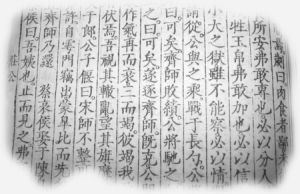 劌曰肉食者鄙未
所安弗敢專也必以分人
牲玉帛弗敢加也必以信
小大之獄雖不能察必以情
請從公與之乘戰于長勺公
曰可矣齊師敗績公將馳之
之曰可矣遂逐齊師既克公
作氣再而衰三而竭彼竭我
伏焉吾視其轍亂望其旗靡
于郎公子偃曰宋師不整
許自雩門竊出蒙皋比而先
齊師乃還 蔡哀侯娶于陳
侯曰吾姨也止而見之弗
莊公